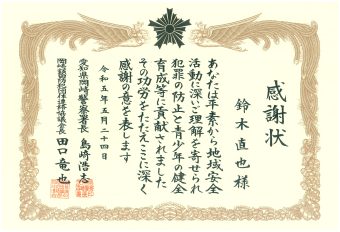 感謝状
鈴木直也様
あなたは平素から地域安全
活動に深いご理解を寄せられ
犯罪の防止と青少年の健全
育成等に貢献されました
その功労をたたえここに深く
感謝の意を表します
令和五年五月二十四日
愛知県岡崎警察署長 島崎浩志
岡崎 防犯 団体連絡協議会長 田口竜也